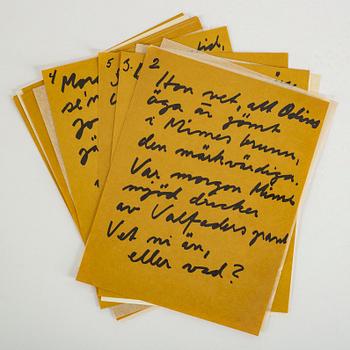 2
Hon vet, att Odins
öga är gömt
i Mimes brunn,
den märkvärdiga.
Var morgon Mime
mjöd dricker
av Valfaders pant
Vet ni än,
eller vad?
4
5
3.